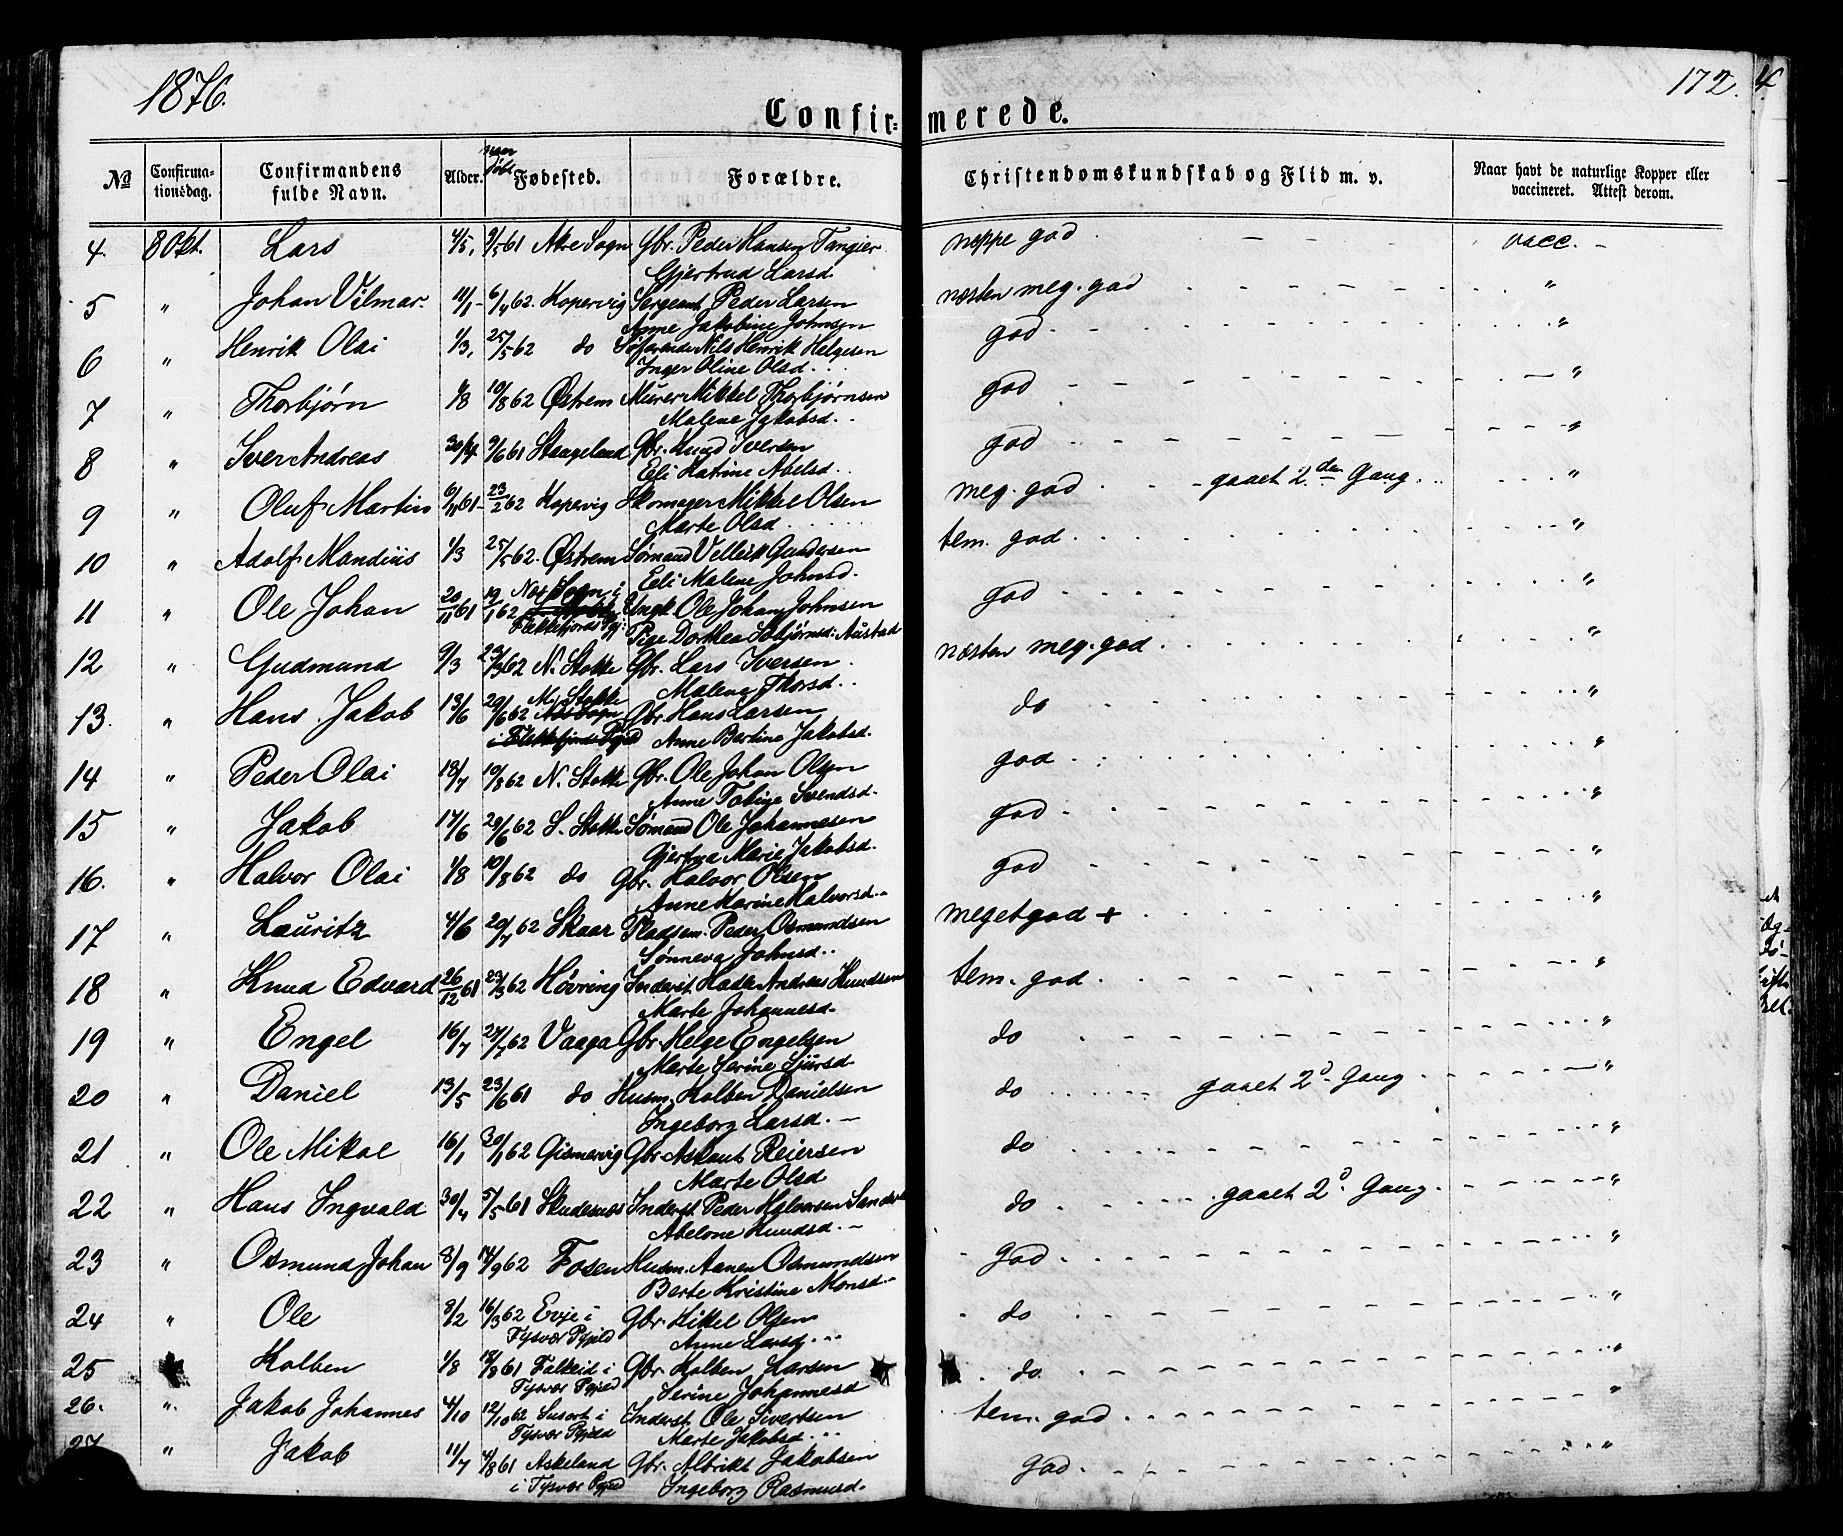 1876.
172.
Confirmerede.
No
Confirmationsdag.
Confirmandens fulde Navn.
Alder.
Fødested.
Forældre.
Christendomskundskab og Flid m. v.
Naar havt de naturlige Kopper eller vaccineret. Attest derom.
4. 8 Okt. Lars 4/5, 9/5 61 Akre Sogn Gbr. Peder Hansen Tangjer neppe god vacc.
Gjertrud Larsd.
5 " Johan Vilmar 11/1 6/4 62. Kopervig Sergeant Peder Larsen næsten meg. god "
Anne Jakobine Johnsen
6 " Henrik Olai 1/3, 25/5 62 do Søfarende Nils Henrik Helgesen god "
Inger Oline Olsd.
7 " Thorbjørn 1/8 10/8 62 Østrem Murer Mikkel Thorbjørnsen god "
Malene Jakobsd.
8 " Iver Andreas 30/4 9/6 61 Stangeland Gbr. Knud Iversen god "
Eli Katrine Abelsd.
9 " Oluf Martin 6/11 61 23/2 62 Kopervig Skomager Mikkel Olsen meg. god gaaet 2den Gang "
Marte Olsd.
10 " Adolf Mandius 1/3 25/5 62. Østrem Sømand Vellick Gundersen tem. god "
Eli Malene Johnsd.
11 " Ole Johan 20/11 61 19/1 62 Nes Sogn i Ungk. Ole Johan Johnsen god "
Flekkefjords Pgj: Pige Dorthea Asbjørnsd: Austad
12 " Gudmund 9/3 23/3 62 N. Stokke Gbr. Lars Iversen næsten meg. god "
Malene Thorsd.
13. " Hans Jakob 13/6 29/6 62 M. Stokke Gbr. Hans Larsen do "
Nes Sogn i Flekkefjords Pgjd Anne Bertine Jakobsd.
14 " Peder Olai 18/7 10/8 62 N. Stokke Gbr. Ole Johan Olsen god "
Anne Tobine Svendsd.
15 " Jakob 17/6 29/6 62 S. Stokke Sømand Ole Johannesen god "
Gjertrua Marie Jakobsd.
16. " Halvor Olai 1/8 10/8 62 do Gbr. Halvor Olsen god "
Anne Karine Halvorsd.
17 " Lauritz 4/6 20/7 62 Skaar Pladsem. Peder Osmundsen meget god + "
Sønneva Johnsd.
18 " Knud Edvard 26/12 61 23/3 62 Høvring Inderst Hadle Andreas Knudsen tem. god "
Marte Johannesd.
19 " Engel 16/7 27/7 62 Vaaga Gbr. Helge Engelsen do "
Marte Serine Sjursd.
20 " Daniel 13/5 23/6 61 do Husm. Kolben Danielsen do gaaet 2d. Gang "
Ingeborg Larsd.
21 " Ole Mikal 16/1 30/1 62 Gismervig Gbr. Askaut Reiersen do "
Marte Olsd
22 " Hans Ingvald 30/4 5/5 61 Skudesnes Inderst Peder Halvorsen do gaaet 2d. Gang "
Abelone Knudsd.
23 " Osmund Johan 8/9 14/9 62 Fosen Husm. Aanen Osmundsen god "
Berte Kristine Monsd.
24 " Ole 8/2 16/3 62 Evje i Gbr. Mikel Olsen do "
Tysvær Pgjeld Anne Larsd
25 Kolben 1/8 18/8 61 Falkeid i Gbr. Kolben Larsen do "
Tysvær Pgjeld Serine Johannesd
26. " Jakob Johannes 4/10 12/10 62 Susort i Inderst Ole Sivertsen tem. god "
Tysvær Pgjeld Marte Jakobsd
27 " Jakob 11/7 4/8 61 Askeland Gbr. Albrikt Jakobsen god "
i Tysvær Pgjeld Ingeborg Rasmusd.